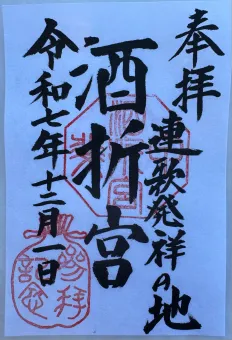 奉拝
連歌発祥の地
酒折宮
令和七年十二月一日
参拝記念